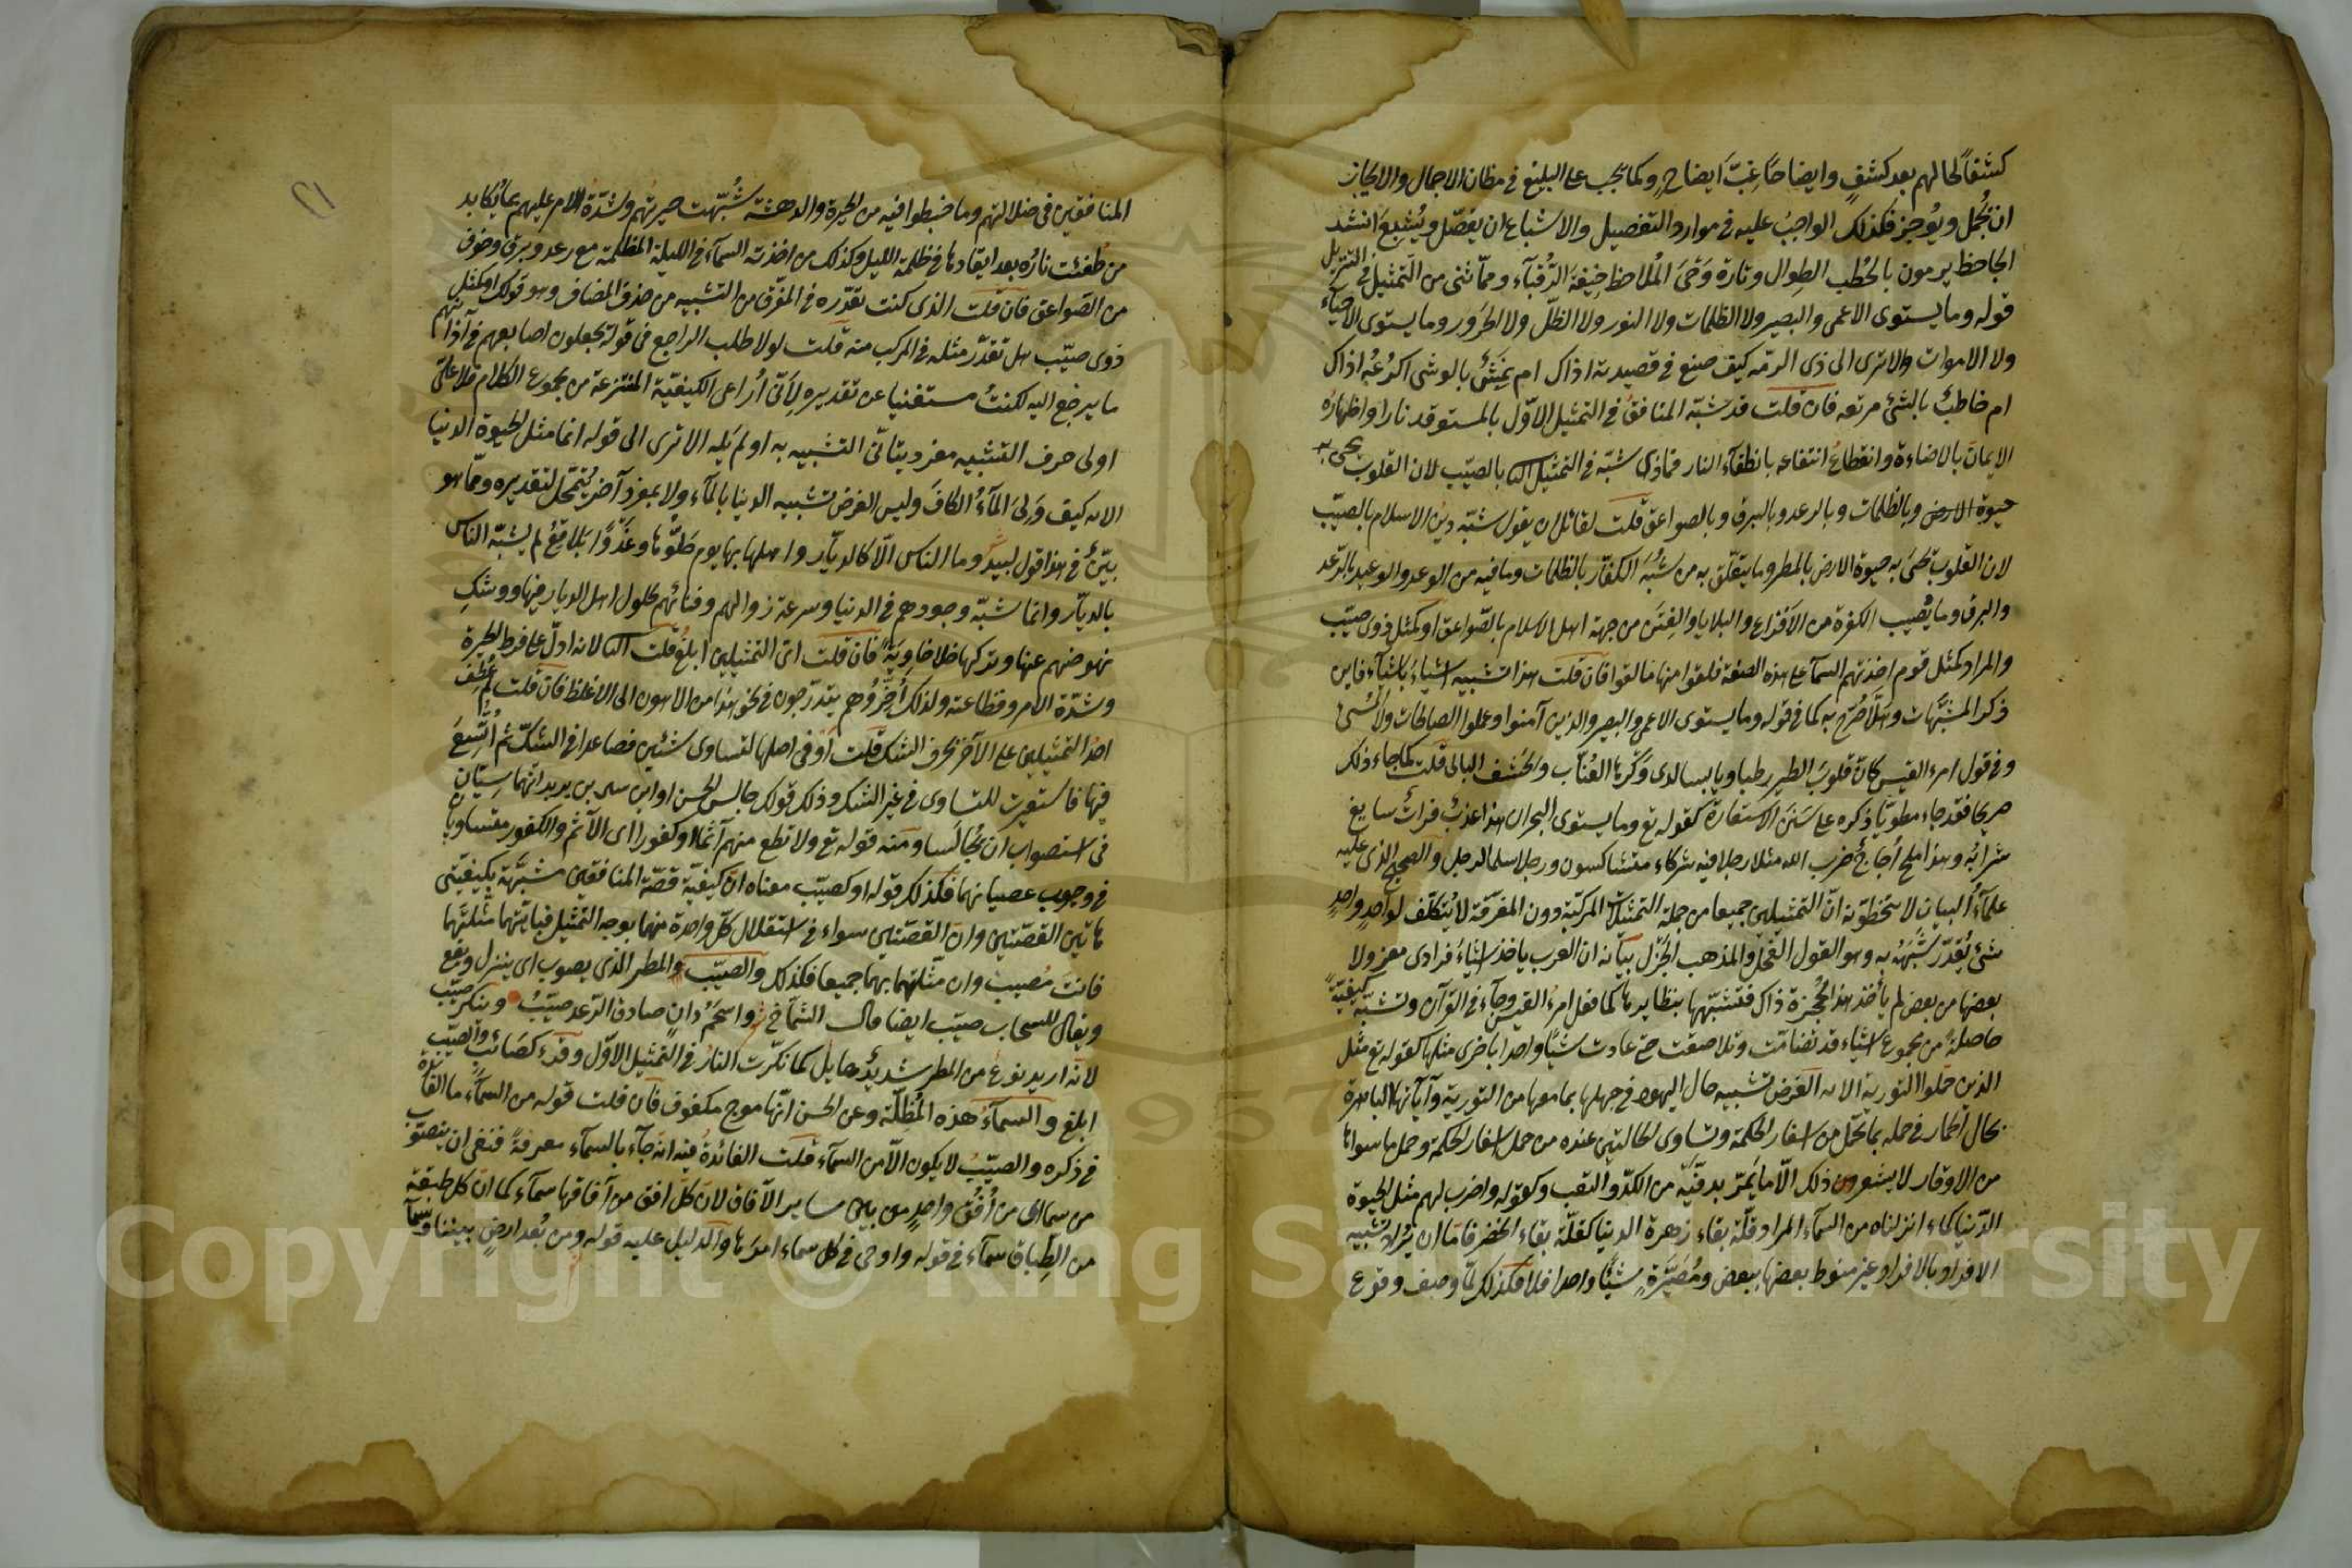 كشفًا لحالهم بعد كشفٍ وايضاحًا غِبَّ ايضاحٍ وكما يجب على البليغ في مظان الاجمال والايجاز
ان يُجمل ويُوجز فكذلك الواجبُ عليه في موارد التفصيل والاشباع ان يفصّل ويُشبِعَ انشد
الجاحظ يرمون بالخُطب الطِوال وتارة وَحْيَ المُلاحظ خِيفةَ الرُقَبآء وممّا ثنى من التمثيل في التنزيل
قوله وما يستوى الاعمى والبصير ولا الظلمات ولا النور ولا الظلّ ولا الحَرور وما يستوى الاحيآء
ولا الاموات والا ترى الى ذى الرمّه كيف صنع في قصيدته اذاك ام نَمِشٌ بالوشى اكرُعُه اذاك
ام خاضبٌ بالسّىّ مرتعه فان قلت قد شبّه المنافقُ في التمثيل الاوّل بالمستوقد نارا واظهارُه
الايمانَ بالاضاءة وانقطاعُ انتفاعه بانطفآء النار فماذا شبّه في التمثيل الثا بالصيّب لان القلوب تحيى به
حيوة الارض وبالظلمات وبالرعد وبالبرق وبالصواعق قلت لقائل ان يقول شبّه دينُ الاسلام بالصيّب
لان القلوب تحيَى به حيوة الارض بالمطر وما يتعلّق به من شُبَه الكفّار بالظلمات وما فيه من الوعد والوعيد بالرّعد
والبرق وما يُصيب الكفرة من الاَفزاع والبلايا والفِتَن من جهة اهل الاسلام بالصّواعق او كمثل ذوى صيّب
والمراد كمثل قوم اخذتهم السمآء على هذه الصفة فلقوا منها ما لقوا فان قلت هذا تشبيه اشياءَ باشيآء فاين
ذكر المشبَّهات وهَلّا صُرّح به كما في قوله وما يستوى الاعمى والبصير والذين آمنوا وعملوا الصالحات ولا المُسىُ
وفي قول امرء القيس كانّ قلوبَ الطير رطبا ويابسا لدى وَكْرها العُنّاب والحَشَف البالى قلت كما جاء ذلك
صريحا فقد جاء مطويًّا ذكره على سَنَن الاستعارة كقوله تع وما يستوى البحران هذا عذبٌ فراتٌ سايغ
شرابُه وهذا ملح اُجاجٌ ضرب الله مثلا رجلا فيه شركاء متشاكسون ورجلا سلما لرجل والصحيح الذى عليه
علمآءُ البيان لا يتخطّونه انّ التمثيلين جميعا من جملة التمثيلات المركّبة دون المفرّقة لا يُتكلّف لواحدٍ واحدٍ
شىءٌ يُقدّر شَبَهُه به وهو القول الفحل والمذهب الجَزْل بيانه ان العرب ياخذ اشياءَ فرادى معزولا
بعضها من بعض لم يأخذ هذا بحُجزة ذاك فتشبّهها بنظايرها كما فعل امرءُ القيس وجآء في القرآن وتشبّه كيفيّةً
حاصلةً من مجموع اشياء قد تضامّت وتلاصقت حتى عادت شيئًا واحدا باخرى مثلها كقوله تع مثل
الذين حمّلوا التورية الاية الغرض تشبيه حال اليهود في جهلها بما معها من التورية وآياتها الباهرة
بحال الحمار في حمله بما تحمّل من اسفار الحكمة وتساوى الحالتين عنده من حمل اسفار الحكمة وحمل ما سواها
من الاوقار لا يشعر من ذلك الّا ما يَمُرّ بدفّيْه من الكدّ والتعب وكقوله واضرب لهم مثل الحيوة
الدّنيا كماء انزلناه من السمآء المراد قلّة بقاء زهرة الدنيا كقلّة بقاء الخضر فاما ان يُراد تشبيه
الافراد بالافراد غير منوط بعضها ببعض ومُصَيَّرةٍ شيئًا واحدا فلا فكذلك لمّا وصف وقوع
المنافقين في ضلالتهم وما خبطوا فيه من الحيرة والدهشة شُبّهت حيرتُهم وشدّةُ الامر عليهم بما يُكابد
من طُفئت نارُه بعد ايقادها في ظلمة الليل وكذلك من اخذته السمآء في الليلة المظلمة مع رعد وبرق وخوف
من الصّواعق فان قلت الذى كنت تقدّره في المفرّق من التشبيه من حذف المضاف وهو قولك او كمثل
ذوى صيّب هل تقدّر مثله في المركب منه قلت لولا طلب الراجع في قوله يجعلون اصابعهم في آذانهم
ما يرجع اليه لكنتُ مستغنيا عن تقديره لِاَنّى اُراعى الكيفيّة المنتزعة من مجموع الكلام فلا علىّ
اولى حرف التشبيه مفرد يتاتّى التشبيه به او لم يَله الا ترى الى قوله انما مثل الحيوة الدنيا
الاية كيف وَلِىَ المآءُ الكافَ وليس الغرض تشبيه الدنيا بالمآء ولا بمفرد آخر يُتمحّل لتقديره وممّا هو
بيّنٌ في هذا قول لبيد وما الناس الّا كالديار واهلها بها يوم حَلّوها وغَدْوًا بَلاقِعُ لم يشبّه الناس
بالديار وانما شبّه وجودهم في الدنيا وسرعة زوالهم وفنائهم بحلول اهل الديار فيها ووشكِ
نهوضهم عنها وتركها خلا خاوِيَةً فان قلت اىّ التمثيلين ابلغ قلت الثا لانه ادلّ على فرط الحيرة
وشدّة الامر وفظاعته ولذلك اُخّر وهم يتدرّجون في نحو هذا من الاهون الى الاغلظ فان قلت لِمَ عُطِف
احدُ التمثيلين على الآخر بحرف الشك قلت اَوْ في اصلها لتساوى شيئين فصاعدا في الشكّ ثم اُتّسِعَ
فيها فاستعيرت للتساوى في غير الشك وذلك قولك جالس الحسن او ابن سيرين يريد انهما سِيّانِ
في استصواب ان يُجالَسا ومنه قوله تع ولا تطع منهم آثما او كفورا اى الآثم والكفور متساويان
في وجوب عصيانهما فكذلك قوله او كصيّب معناه انّ كيفيّة قصّة المنافقين مشبّهة بكيفيّتى
هاتين القصّتين وان القصّتين سواء في استقلال كل واحدة منهما بوجه التمثيل فبايّتهما مثّلتَها
فانتَ مُصيب وان مثّلتها بهما جميعا فكذلك والصيّب المطر الذى يصوب اى ينزل ويقع
ويقال للسحاب صيّب ايضا قال الشمّاخ واسحَمَ دانٍ صادق الرّعد صيّبُ وتنكير صيّب
لانه اريد نوعٌ من المطر شديدٌ هايل كما نكّرت النارُ في التمثيل الاوّل وقرء كصائبٍ والصيّب
ابلغ والسمآءُ هذه المُظِلّة وعن الحسن انّها موج مكفوف فان قلت قوله من السمآء ما الفائدة
في ذكره والصيّبُ لا يكون الّا من السمآء قلت الفائدةُ فيه انه جآء بالسمآء معرفةً فنفى ان يتصوّب
من سماءٍ اى من اُفُق واحدٍ من بين ساير الآفاق لانّ كلّ افق من آفاقها سمآء كما ان كل طبقة
من الطِباق سمآء في قوله واوحى في كل سماء امرَها والدليل عليه قوله ومن بُعد ارضٍ بيننا وسمآءِ